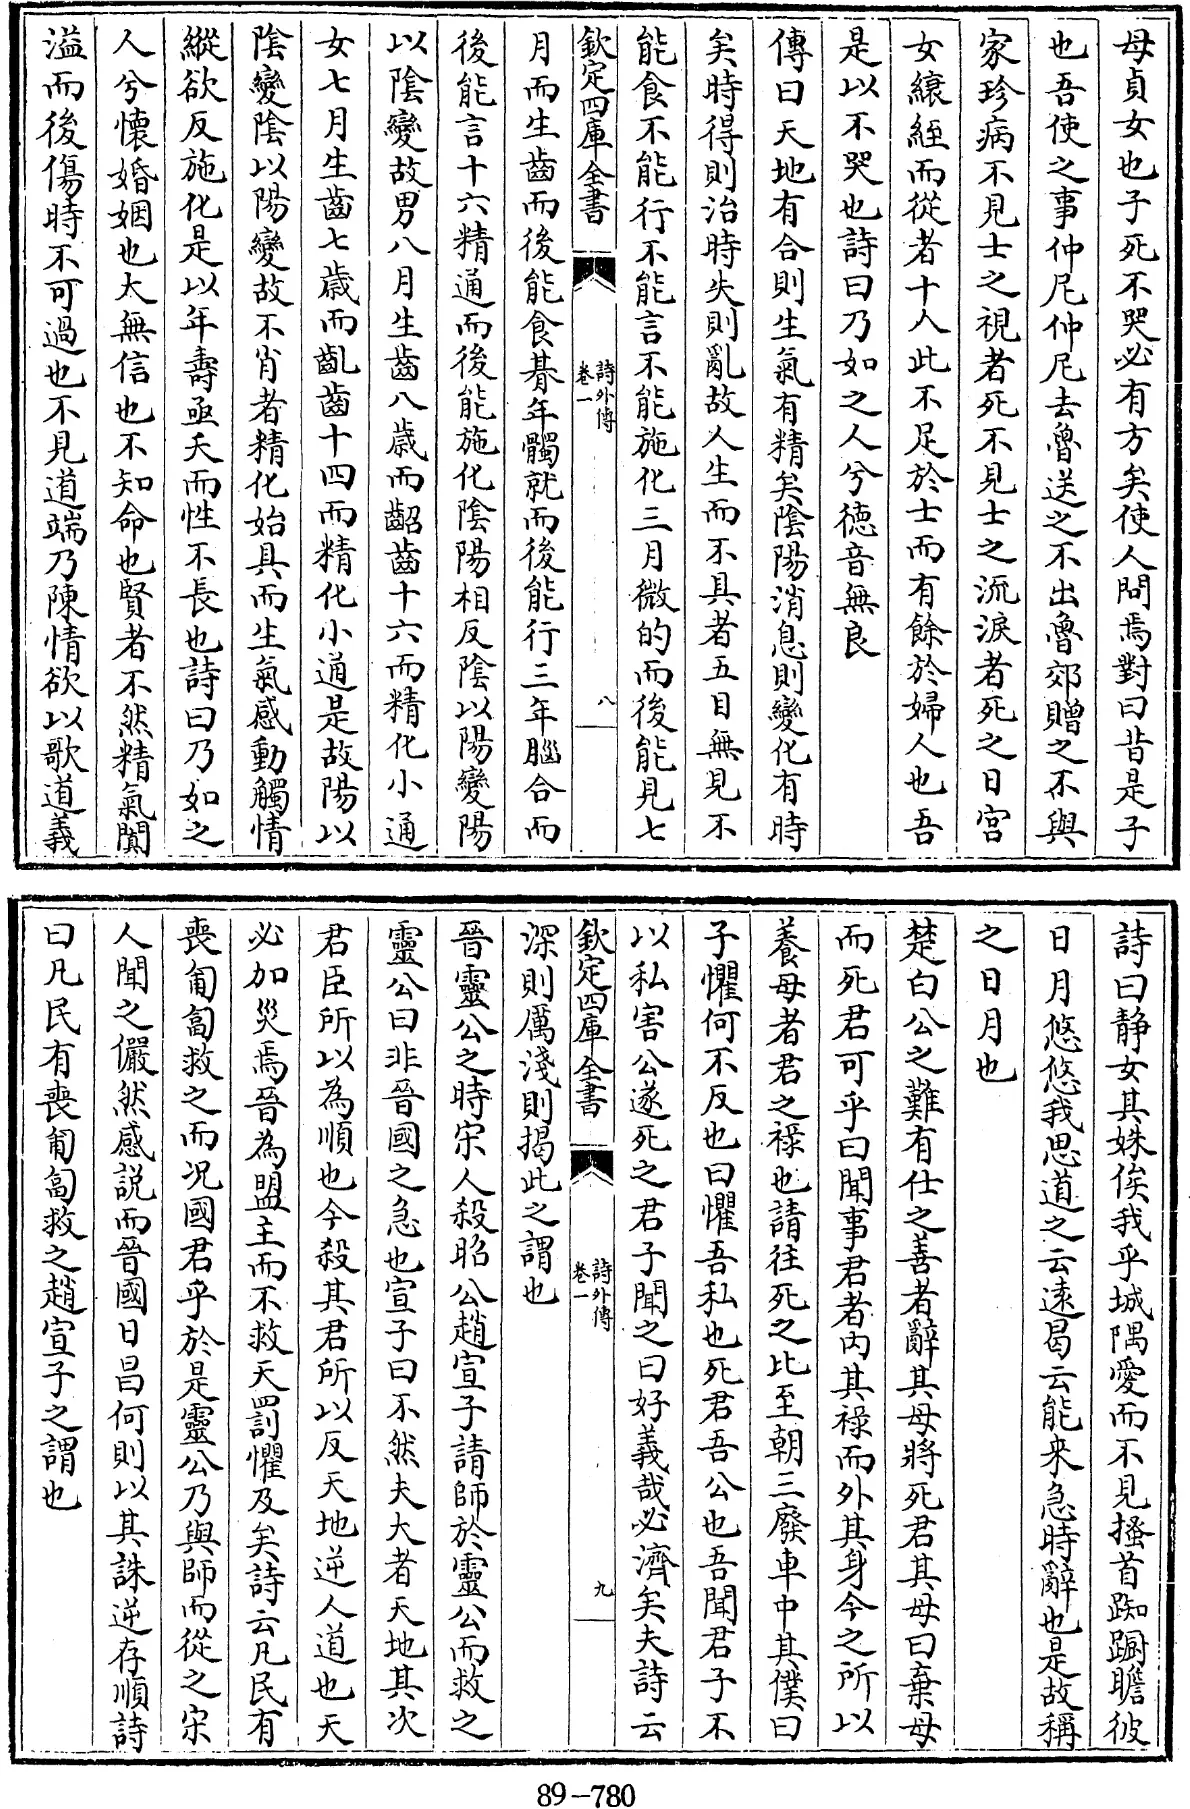 母貞女也子死不哭必有方矣使人問焉對曰昔是子
也吾使之事仲尼仲尼去魯送之不出魯郊贈之不與
家珍病不見士之視者死不見士之流淚者死之日宮
女縗絰而從者十人此不足於士而有餘於婦人也吾
是以不哭也詩曰乃如之人兮德音無良
傳曰天地有合則生氣有精矣陰陽消息則變化有時
矣時得則治時失則亂故人生而不具者五目無見不
能食不能行不能言不能施化三月微的而後能見七
欽定四庫全書
詩外傳
卷一
八
月而生齒而後能食朞年髑就而後能行三年腦合而
後能言十六精通而後能施化陰陽相反陰以陽變陽
以陰變故男八月生齒八歲而齠齒十六而精化小通
女七月生齒七歲而齔齒十四而精化小通是故陽以
陰變陰以陽變故不肖者精化始具而生氣感動觸情
縱欲反施化是以年壽亟夭而性不長也詩曰乃如之
人兮懷婚姻也太無信也不知命也賢者不然精氣闐
溢而後傷時不可過也不見道端乃陳情欲以歌道義
詩曰静女其姝俟我乎城隅愛而不見搔首踟蹰瞻彼
日月悠悠我思道之云遠曷云能来急時辭也是故稱
之日月也
楚白公之難有仕之善者辭其母將死君其母曰棄母
而死君可乎曰聞事君者内其祿而外其身今之所以
養母者君之祿也請往死之比至朝三廢車中其僕曰
子懼何不反也曰懼吾私也死君吾公也吾聞君子不
以私害公遂死之君子聞之曰好義哉必濟矣夫詩云
欽定四庫全書
詩外傳
卷一
九
深則厲淺則揭此之謂也
晉靈公之時宋人殺昭公趙宣子請師於靈公而救之
靈公曰非晉國之急也宣子曰不然夫大者天地其次
君臣所以為順也今殺其君所以反天地逆人道也天
必加災焉晉為盟主而不救天罰懼及矣詩云凡民有
喪匍匐救之而况國君乎於是靈公乃與師而從之宋
人聞之儼然感説而晉國日昌何則以其誅逆存順詩
曰凡民有喪匍匐救之趙宣子之謂也
89-780